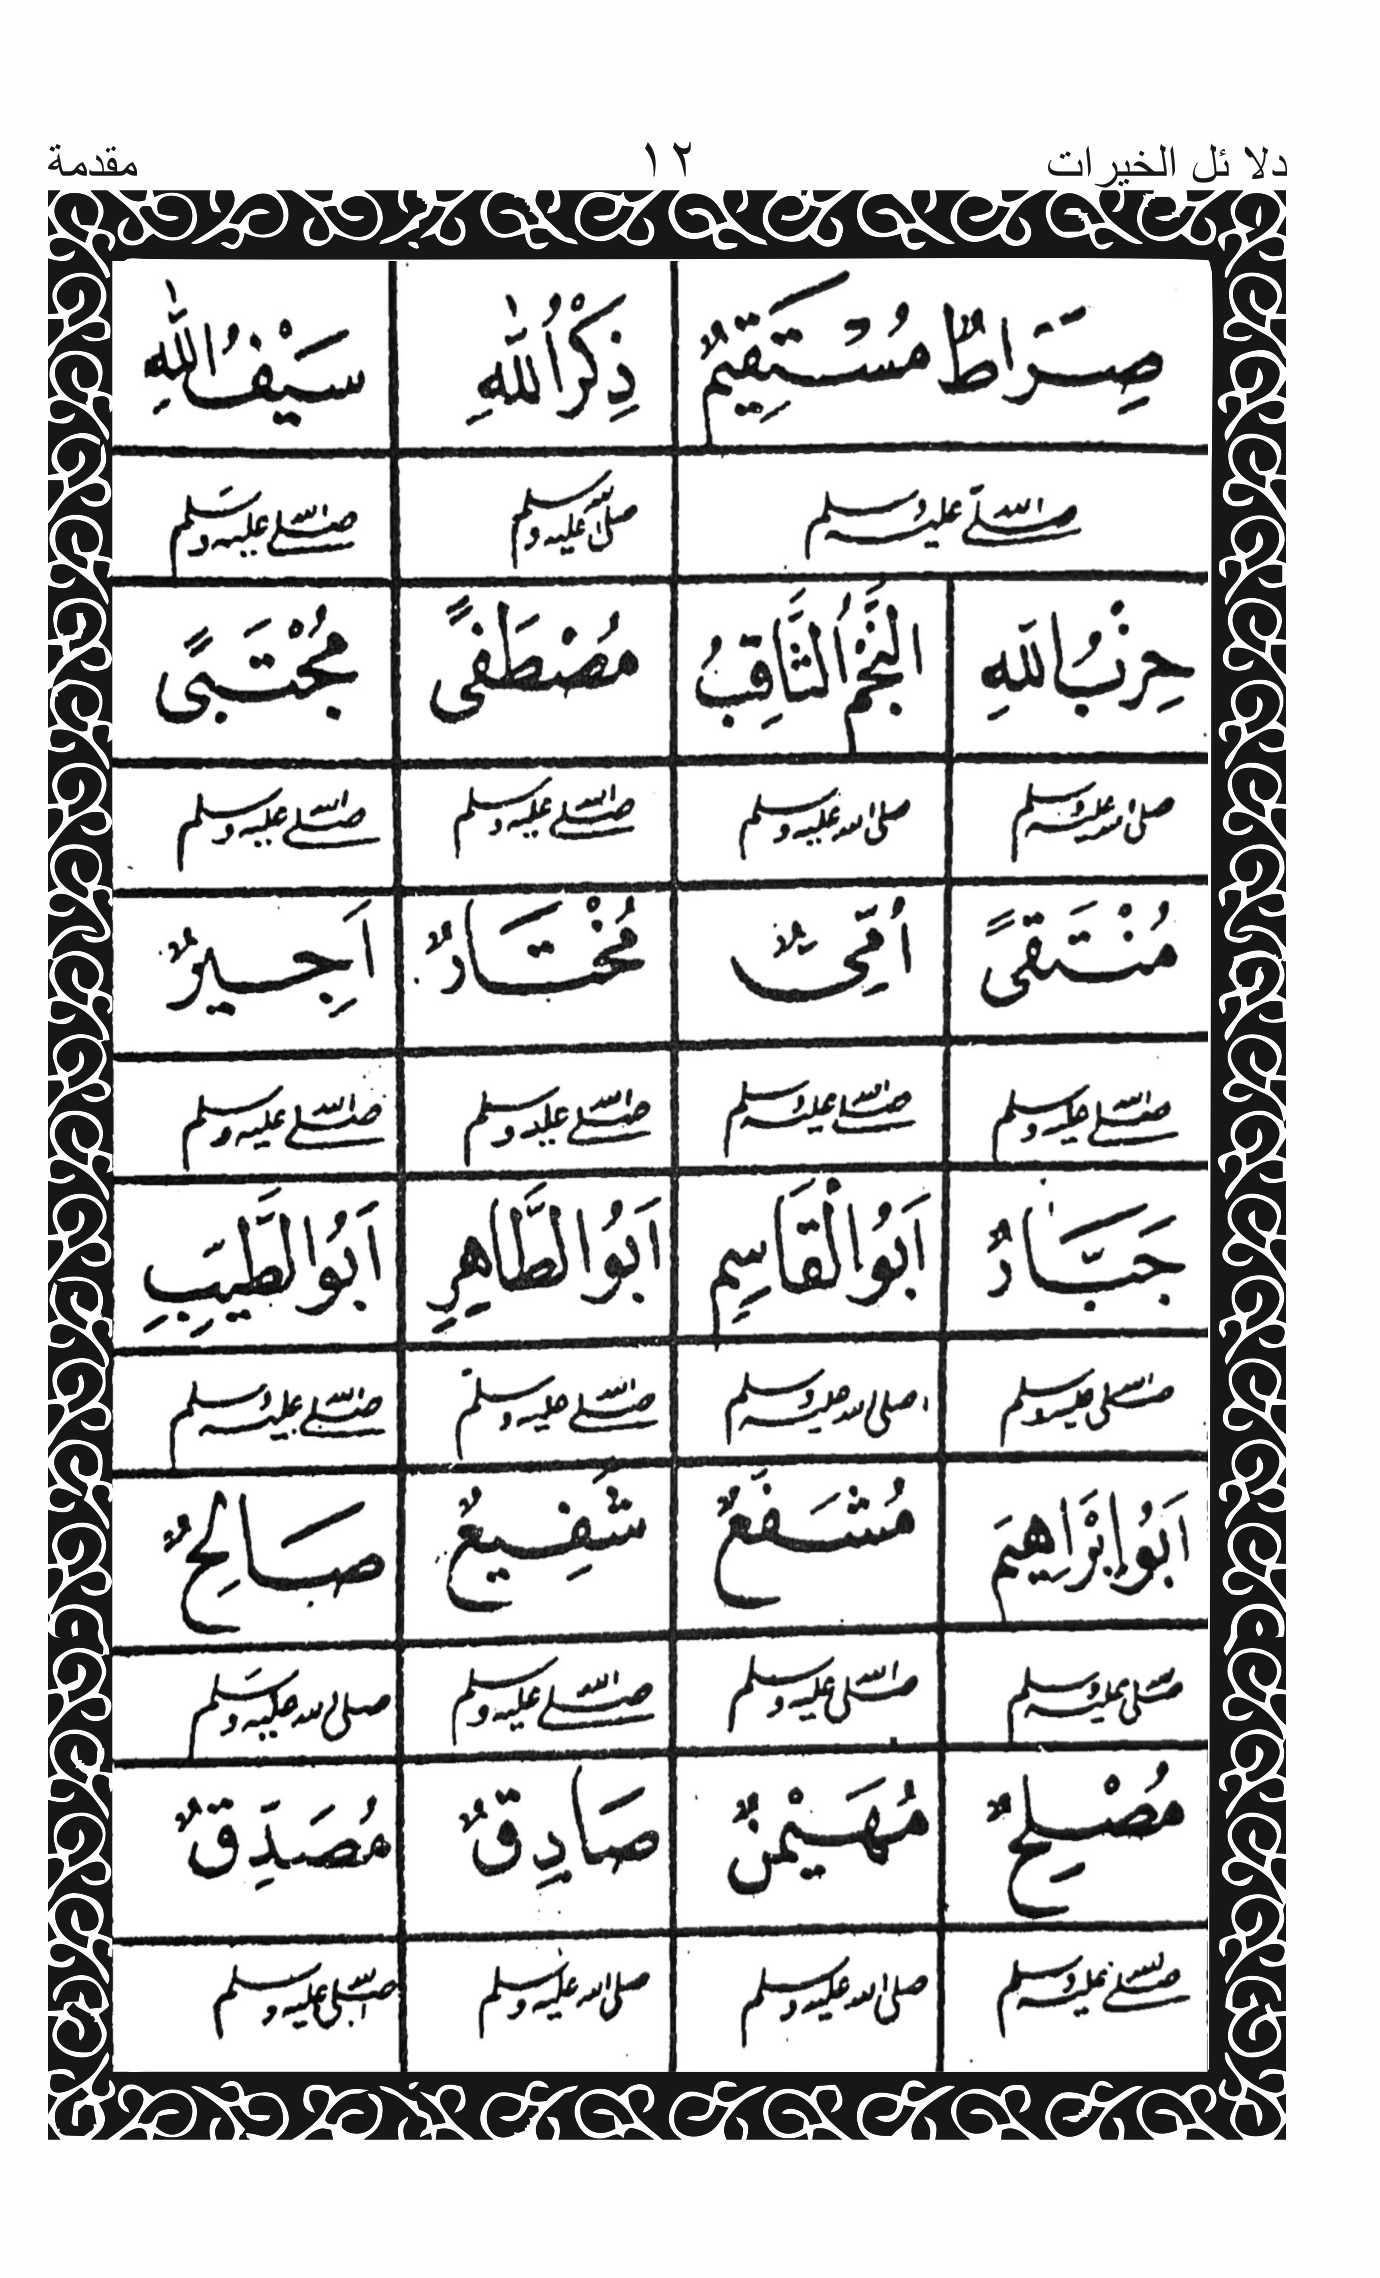 دلا ئل الخيرات ١٢ مقدمة
صِرَاطٌ مُسْتَقِيمٌ ذِكْرُ اللّٰهِ سَيْفُ اللّٰهِ
صلى الله عليه وسلم صلى الله عليه وسلم صلى الله عليه وسلم
حِزْبُ اللهِ النَّجْمُ الثَّاقِبُ مُصْطَفًى مُجْتَبًى
صلى الله عليه وسلم صلى الله عليه وسلم صلى الله عليه وسلم صلى الله عليه وسلم
مُنْتَقًى أُمِّىٌّ مُخْتَارٌ اَجِيرٌ
صلى الله عليه وسلم صلى الله عليه وسلم صلى الله عليه وسلم صلى الله عليه وسلم
جَبَّارٌ اَبُوالْقَاسِمِ اَبُوالطَّاهِرِ اَبُوالطَّيِّبِ
صلى الله عليه وسلم صلى الله عليه وسلم صلى الله عليه وسلم صلى الله عليه وسلم
اَبُوإِبْرَاهِيمَ مُشَفَّعٌ شَفِيعٌ صَالِحٌ
صلى الله عليه وسلم صلى الله عليه وسلم صلى الله عليه وسلم صلى الله عليه وسلم
مُصْلِحٌ مُهَيْمِنٌ صَادِقٌ مُصَدِّقٌ
صلى الله عليه وسلم صلى الله عليه وسلم صلى الله عليه وسلم صلى الله عليه وسلم